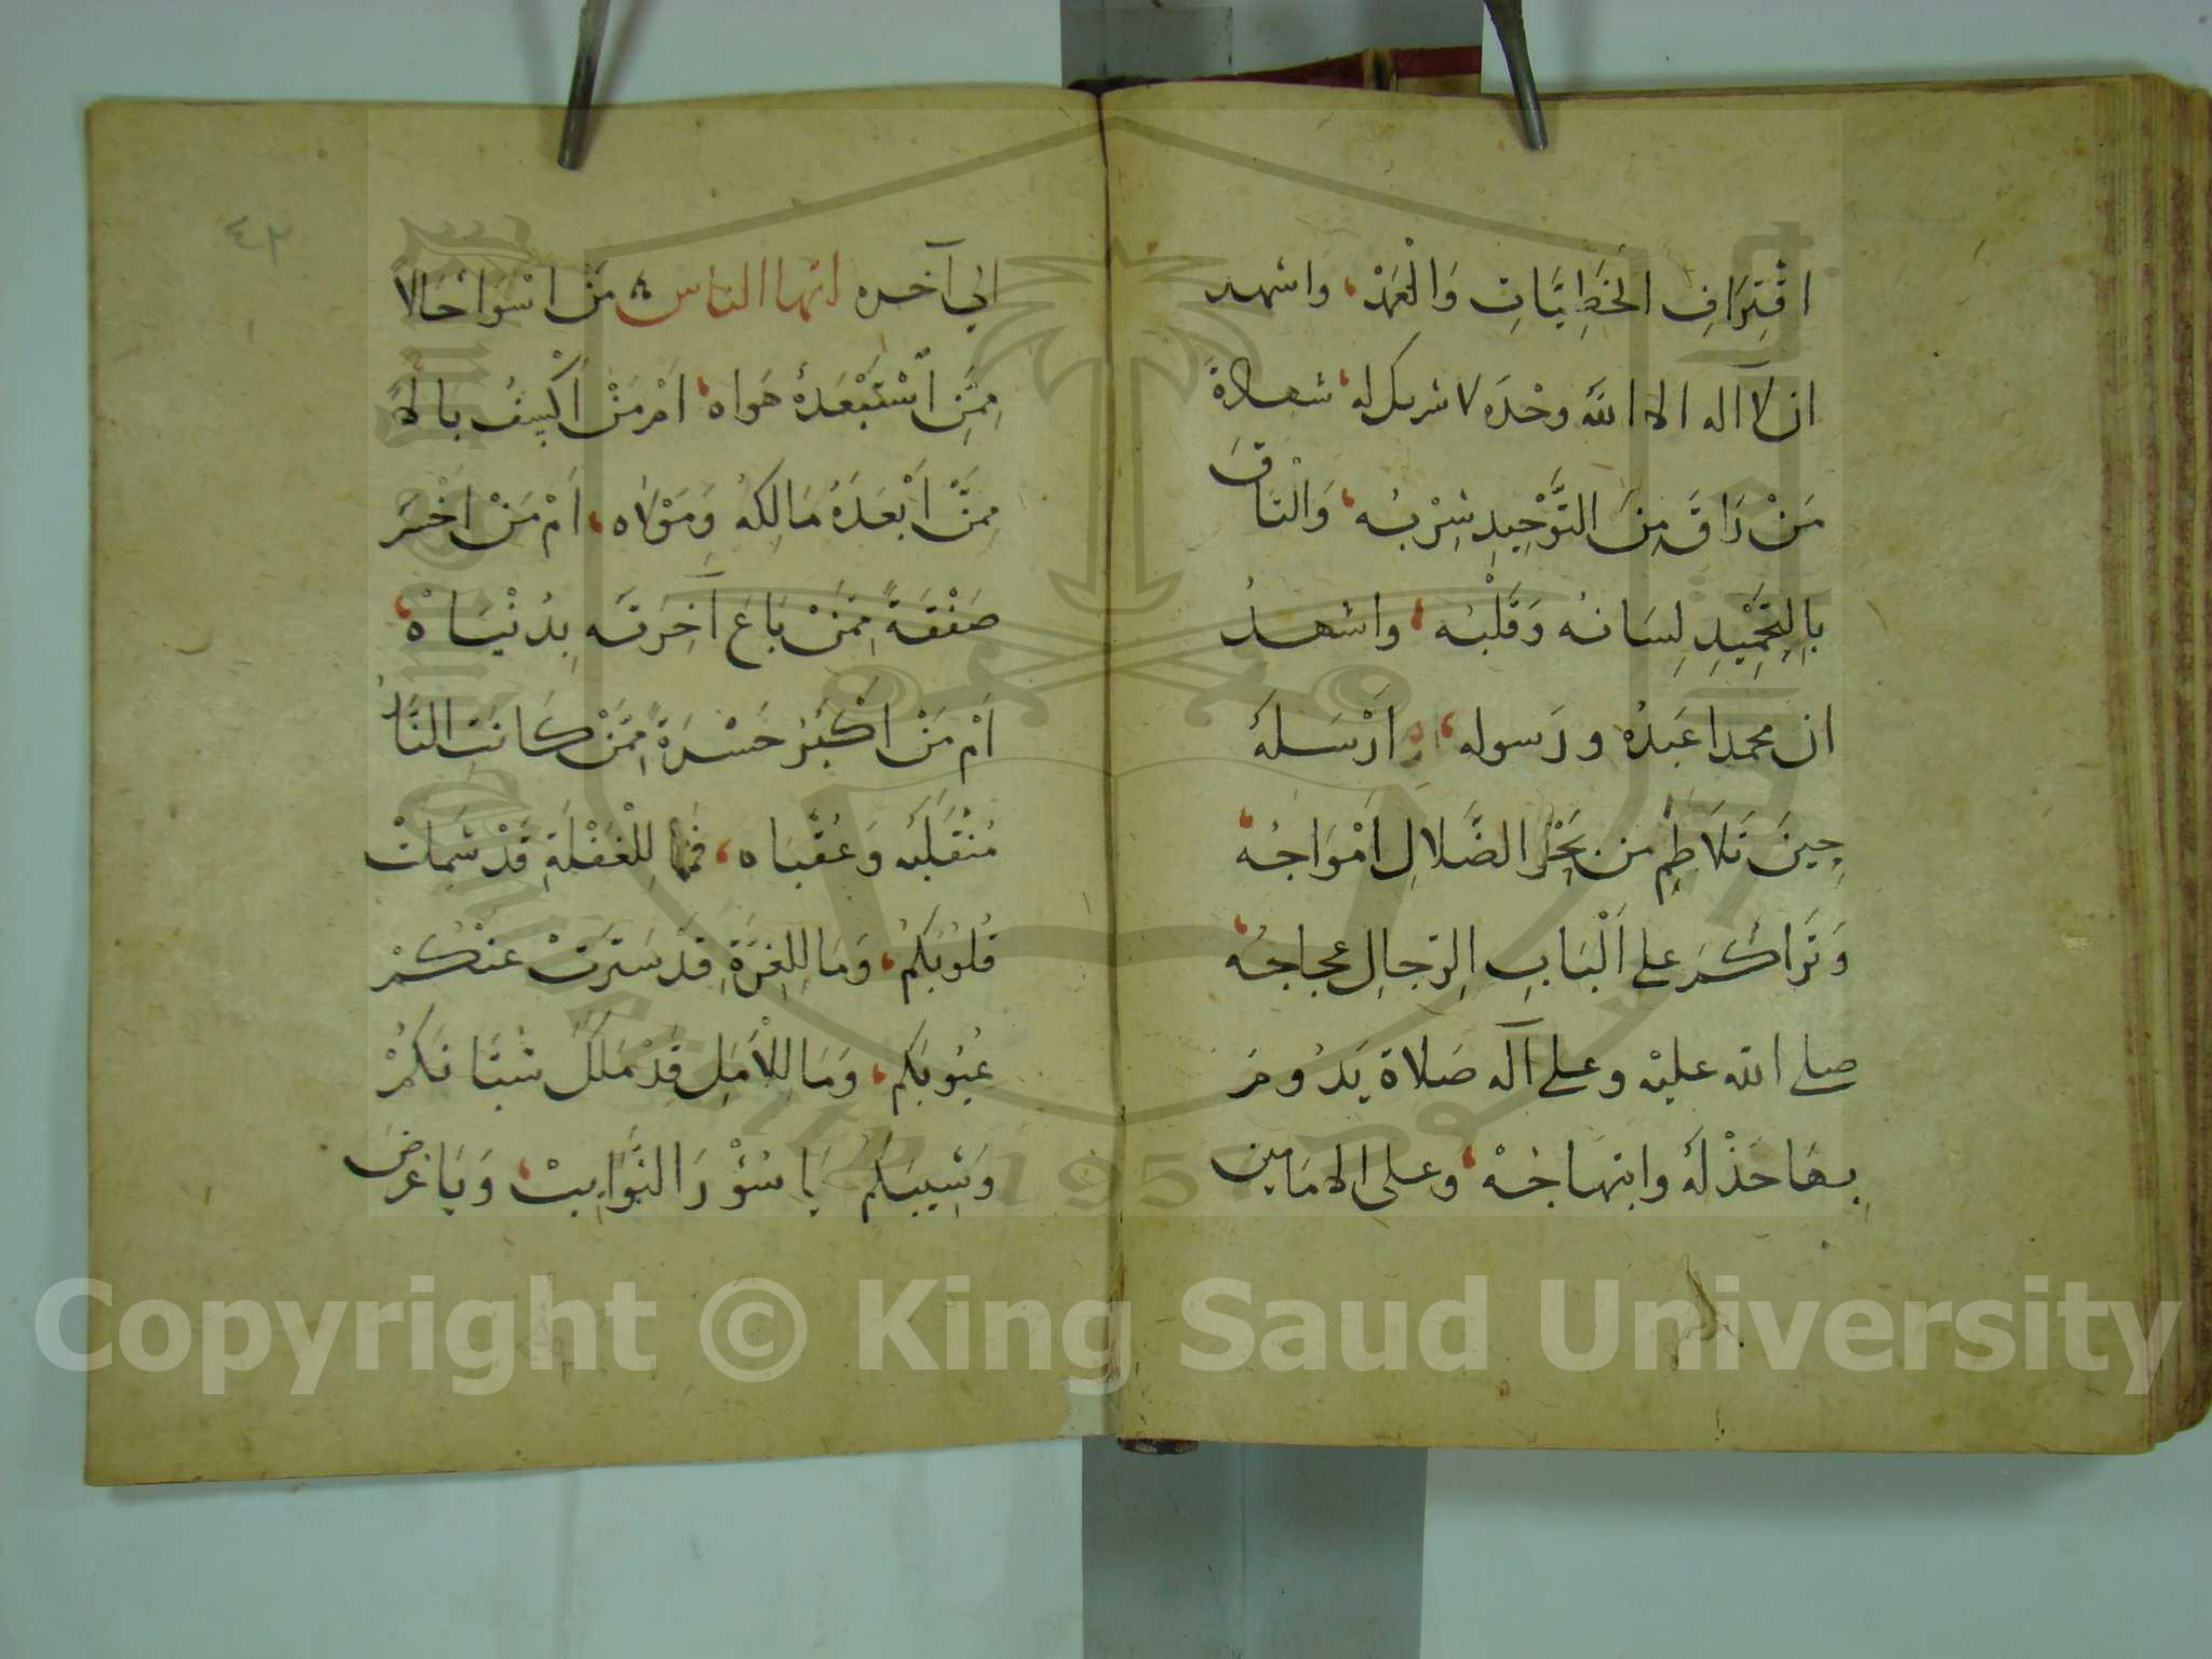 اقْتِرَافِ الخَطِيَّاتِ وَالْعَمْدْ، واشهد
ان لا اله الا الله وحْدَه لا شريك له، شهادةَ
مَنْ رَاقَ مِنَ التَّوْحِيدِ شِرْبُه، وَالْتَاقَ
بِالتَّحْمِيْدِ لِسَانُه وَقَلْبُه، واشهدُ
ان محمدا عَبدُه ورَسوله، اَرْسَلهُ
حِينَ تَلَاطمِ من بَحْرِ الضَّلالِ اَمْوَاجُه،
وَتَرَاكَمَ على اَلْبَابِ الرّجالِ عجاجُه،
صلى الله عليْه وعلى آله صَلاة يَدُومَ
بِهَا جَذْلَهُ وابتهاجُهْ، وعلى الامَامين
٤٢
الي آخره ايها الناس مَنْ اَسْوَا حَالاً
مِمَّنِ اسْتَعْبَدَهُ هَواه، اَمْ مَنْ اَكْسِفُ بالاً
مِمَّنْ اَبْعَدَهُ مَالِكهُ وَمَوْلاه، اَمْ مَنْ اَخْسَرَ
صَفْقَةً مِمَّنْ بَاعَ آخِرَته بِدُنْيَاهْ،
اَمْ مَنْ اَكْبَرُ حَسْرَةً مِمَّنْ كَانَتِ النَّارُ
مُنْقَلَبَه وَعُقْبَاه، فَمَا لِلْغَفْلَةِ قَدْ شَمِلَتْ
قُلُوْبَكمُ، وَمَا لِلغِرَّةِ قدْ سَتَرتْ عَنْكُمْ
عُيُوبَكم، وَمَا لِلْاَمَلِ قَدْ مَلَكَ شُبَّانَكمُْ
وَشِيبَكم يَا سُؤْرَ النَّوَايبْ، وَيَا غرَضَ
Copyright © King Saud University
1957